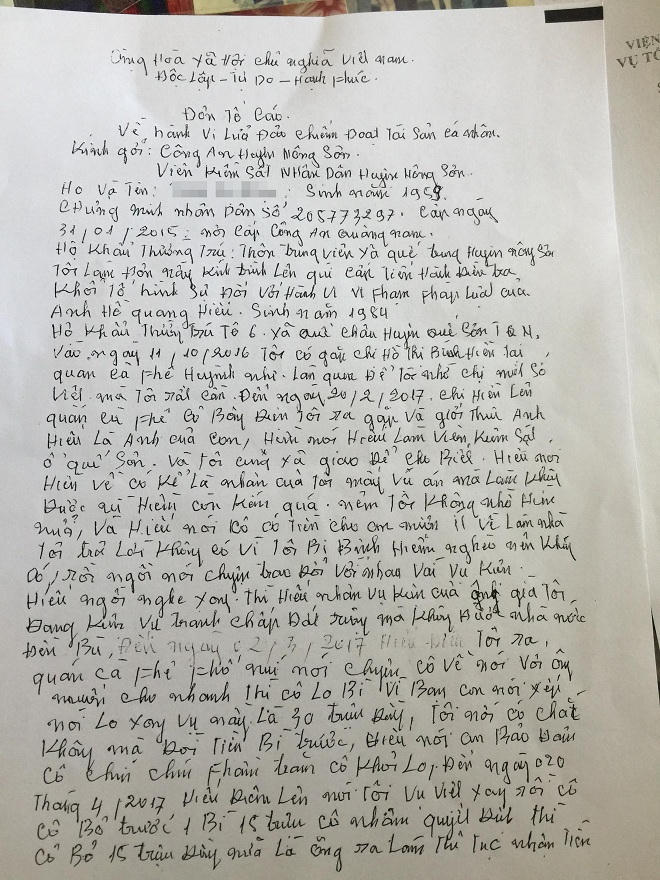 Cộng Hòa Xã Hội chủ nghĩa Việt nam.
Độc Lập - Tự Do - Hạnh phúc.
VIỆN
VỤ TỐ
Đơn Tố Cáo.
Về hành Vi Lừa Đảo chiếm Đoạt Tài Sản cá nhân.
Kính gởi: Công An Huyện Nông Sơn.
Viện Kiểm Sát Nhân Dân Huyện Nông Sơn.
Họ Và Tên: Sinh năm 1959.
Chứng minh nhân Dân Số 205773297. Cấp ngày
31/01/2015: nơi cấp Công An Quảng nam.
Hộ Khẩu Thường Trú: Thôn trung viên Xã quế trung Huyện nông Sơn
Tôi Làm Đơn này Kính trình Lên quí cấp Tiến Hành Điều tra
Khởi Tố hình Sự Đối Với Hành Vi Vi Phạm Pháp Luật của
Anh Hồ quang Hiếu. Sinh năm 1984
Hộ Khẩu Thường trú Tổ 6. Xã Quế Châu Huyện Quế Sơn TQN,
Vào ngày 11/10/2016 Tôi có gặp chị Hồ Thị Bình Hiền Tại
quán cà phê Huỳnh như. Làn quen Để Tôi nhờ chị một Số
Việc mà Tôi rất cần. Đến ngày 20/2/2017. chị Hiền Lên
quán cà phê cô Bảy Điện Tôi ra gặp Và giới Thiệu Anh
Hiếu Là Anh của con, Hiền nói Hiếu Làm Viện Kiểm Sát,
ở quế Sơn. Và Tôi cũng Xã giao Để cho Biết. Hiếu nói
Hiền Về có Kể Là nhân của Tôi mấy Vụ án mà Làm Không
Được vì Hiền còn Kém quá. nênm Tôi Không nhờ Hiền
nữa, Và Hiếu nói Cô có Tiền cho an mượn ít Về Làm nhà
Tôi trả Lời Không có Vì Tôi Bị Bệnh Hiểm nghèo nên Không
có, rồi ngồi nói chuyện trao Đổi Với nhau Vài Vụ Kiện.
Hiếu ngồi nghe xong. Thì Hiếu nhận Vụ Kiện của ông già Tôi
Đang Kiện Vụ Tranh chấp Đất ruộng mà Không Được nhà nước
Đền Bù, Đến ngày 02/3/2017 Hiếu Điện Tôi ra,
quán cà phê phố núi nói chuyện cô Về nói Với ông
muốn cho nhanh Thì cô Lo Bì Vì Ban con nói xếp
nói Lo xong Vụ này Là 30 triệu Đồng, Tôi nói có chắc
Không mà Đòi Tiền Bì trước, Hiếu nói an Bảo Đảm
Cô chín chín Phần trăm cô Khỏi Lo, Đến ngày 020
Tháng 4/2017 Hiếu Điện Lên nói Tôi Vụ Việc xong rồi cô
cô Bỏ trước 1 Bì 15 triệu cô nhận quyết Định thì
cô Bỏ 15 triệu Đồng nữa Là ông ra Làm Thủ Tục nhận Tiền